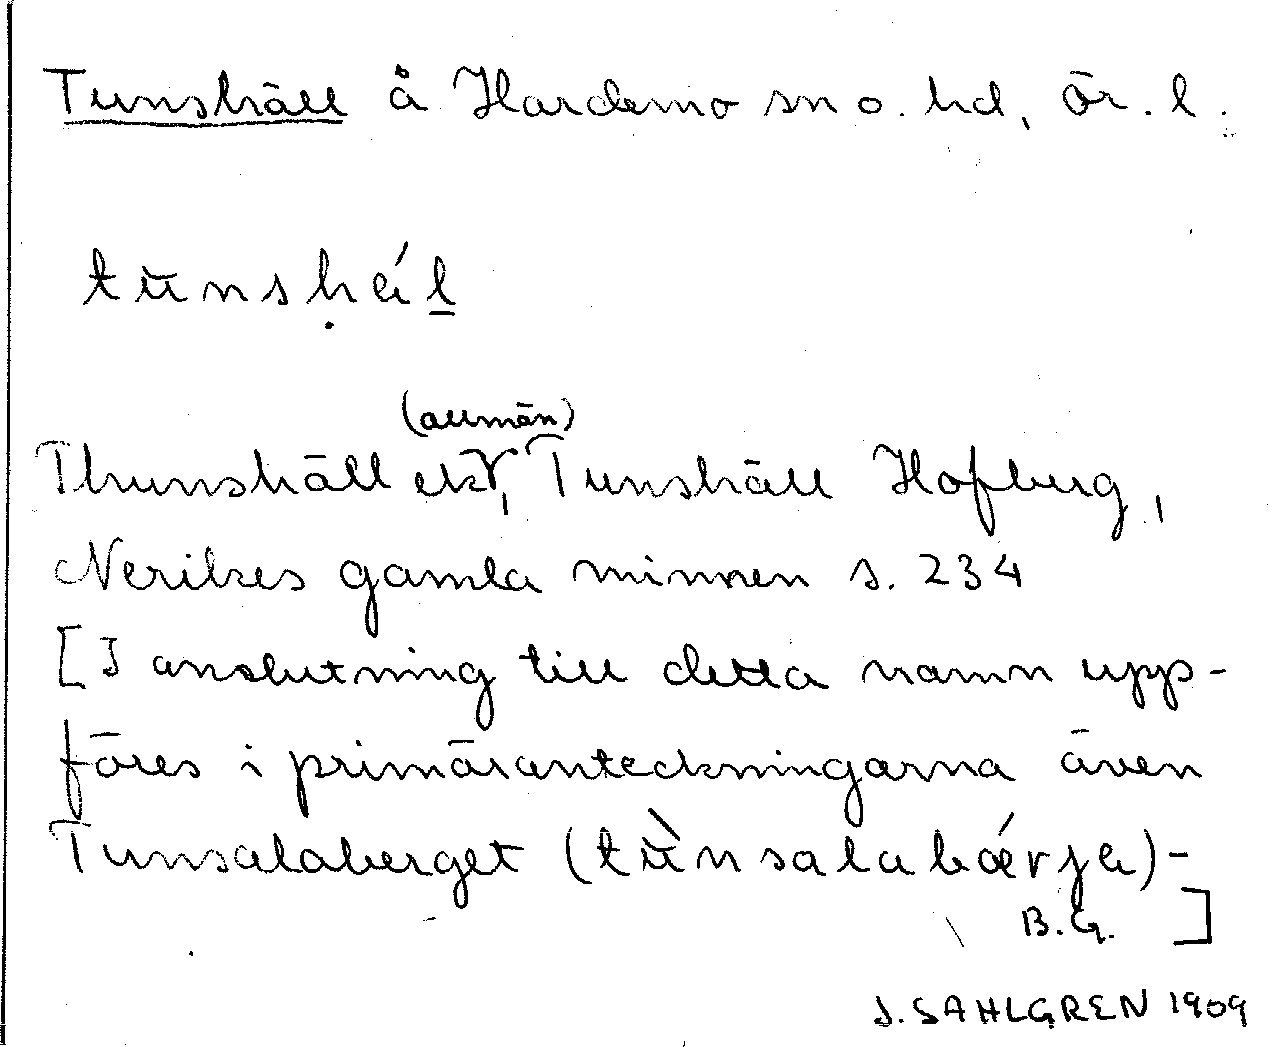 Tunshäll å Hardemo sn o. hd, Ör. l.
tunshál
(allmän)
Thunshäll ek, Tunshäll Hofberg,
Nerikes gamla minnen s. 234
[I anslutning till detta namn upp-
föres i primäranteckningarna även
Tunsalaberget (tùnsalabǽrja)-
B.G. ]
J. SAHLGREN 1909